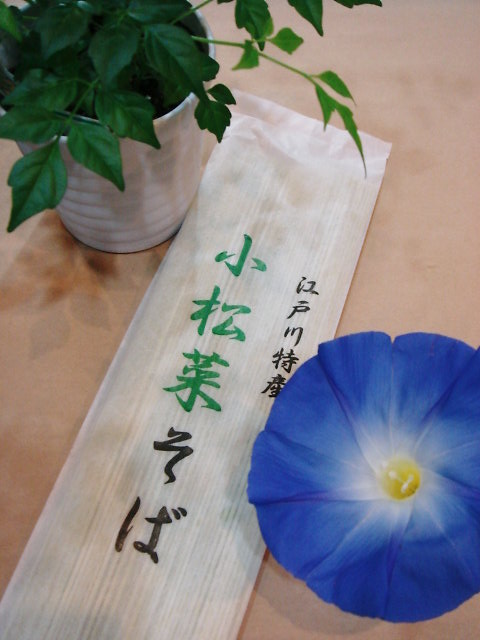 江戸川特産
小松菜そば